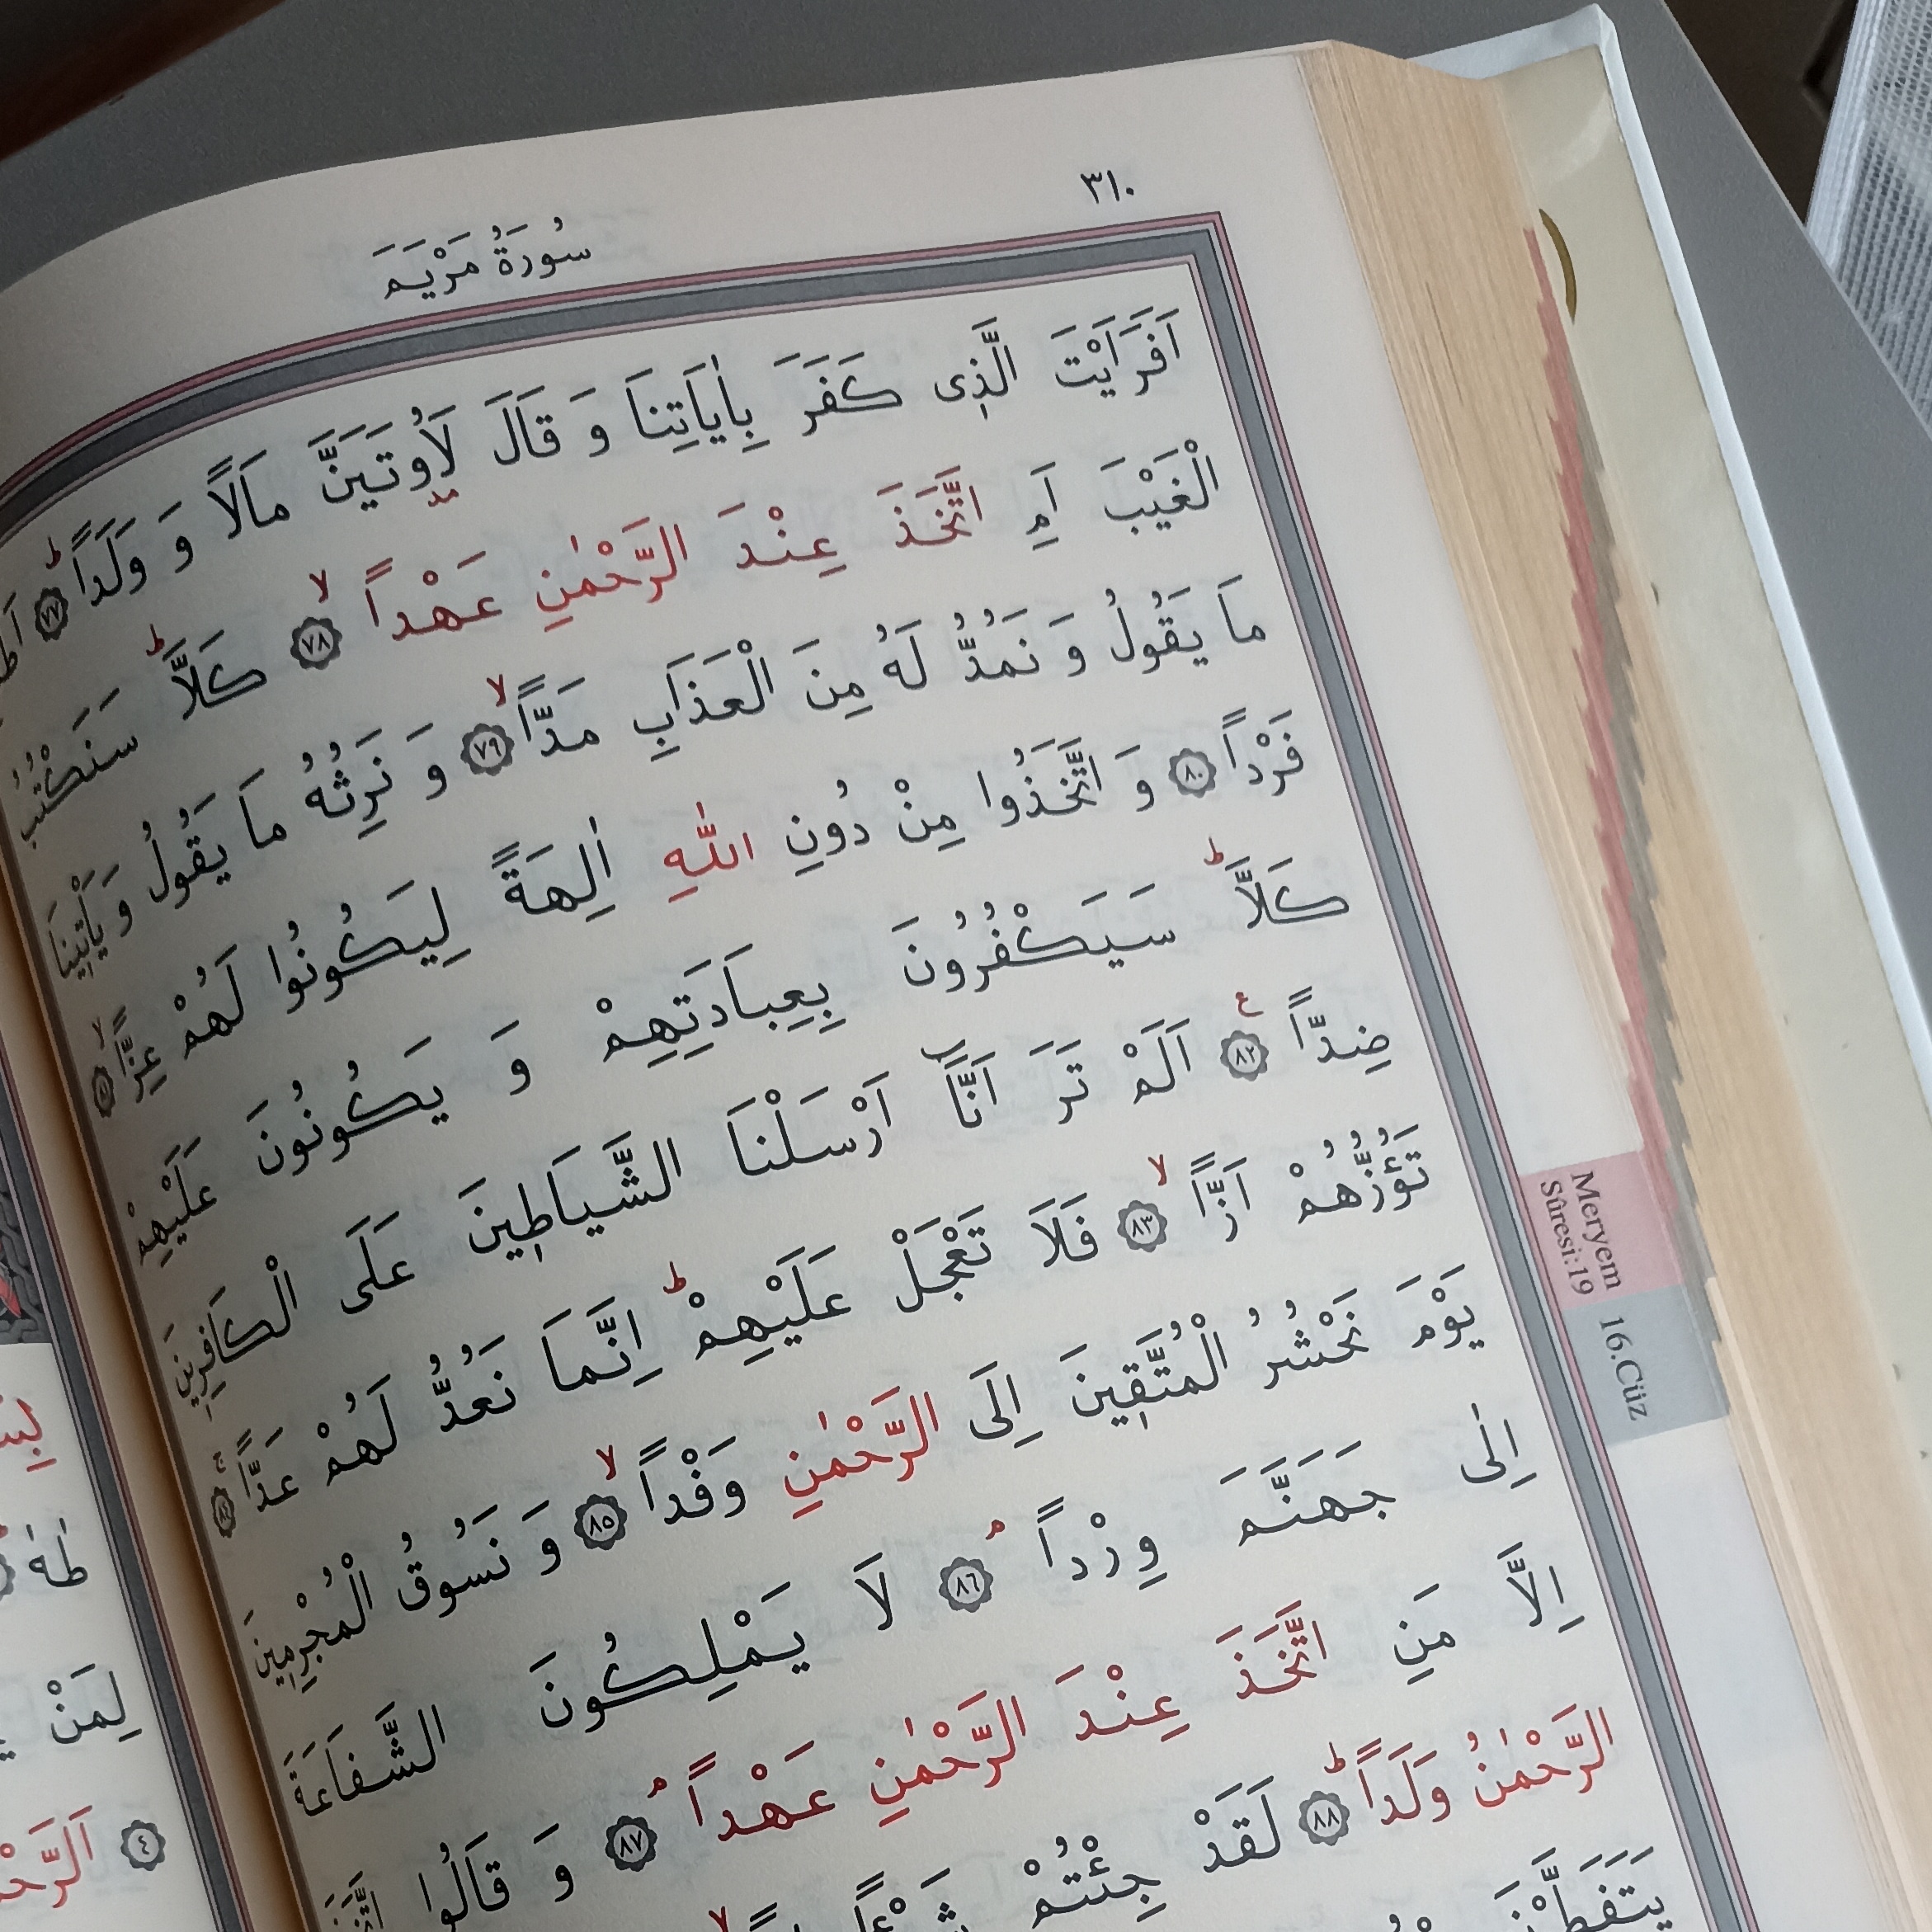 ٣١٠
سُورَةُ مَرْيَمَ
اَفَرَاَيْتَ الَّذِى كَفَرَ بِاٰيَاتِنَا وَ قَالَ لَاُوتَيَنَّ مَالًا وَ وَلَدًاۜ ﴿٧٧﴾
الْغَيْبَ اَمِ اتَّخَذَ عِنْدَ الرَّحْمٰنِ عَهْدًاۙ ﴿٧٨﴾ كَلَّاۜ سَنَكْتُبُ
مَا يَقُولُ وَ نَمُدُّ لَهُ مِنَ الْعَذَابِ مَدًّاۙ ﴿٧٩﴾ وَ نَرِثُهُ مَا يَقُولُ وَ يَاْتِينَا
فَرْدًا ﴿٨٠﴾ وَ اتَّخَذُوا مِنْ دُونِ اللّٰهِ اٰلِهَةً لِيَكُونُوا لَهُمْ عِزًّاۙ ﴿٨١﴾
كَلَّاۜ سَيَكْفُرُونَ بِعِبَادَتِهِمْ وَ يَكُونُونَ عَلَيْهِمْ
ضِدًّا ﴿٨٢﴾ اَلَمْ تَرَ اَنَّٓا اَرْسَلْنَا الشَّيَاطِينَ عَلَى الْكَافِرِينَ
تَؤُزُّهُمْ اَزًّاۙ ﴿٨٣﴾ فَلَا تَعْجَلْ عَلَيْهِمْۜ اِنَّمَا نَعُدُّ لَهُمْ عَدًّاۚ ﴿٨٤﴾
يَوْمَ نَحْشُرُ الْمُتَّقِينَ اِلَى الرَّحْمٰنِ وَفْدًاۙ ﴿٨٥﴾ وَ نَسُوقُ الْمُجْرِمِينَ
اِلٰى جَهَنَّمَ وِرْدًاۢ ﴿٨٦﴾ لَا يَمْلِكُونَ الشَّفَاعَةَ
اِلَّا مَنِ اتَّخَذَ عِنْدَ الرَّحْمٰنِ عَهْدًاۢ ﴿٨٧﴾ وَ قَالُوا
الرَّحْمٰنُ وَلَدًاۜ ﴿٨٨﴾ لَقَدْ جِئْتُمْ
يَتَفَطَّرْنَ
Meryem
Sûresi:19
16.Cüz
طٰهٰ
لِمَنْ
﴿٤﴾ اَلرَّحْمٰنُ